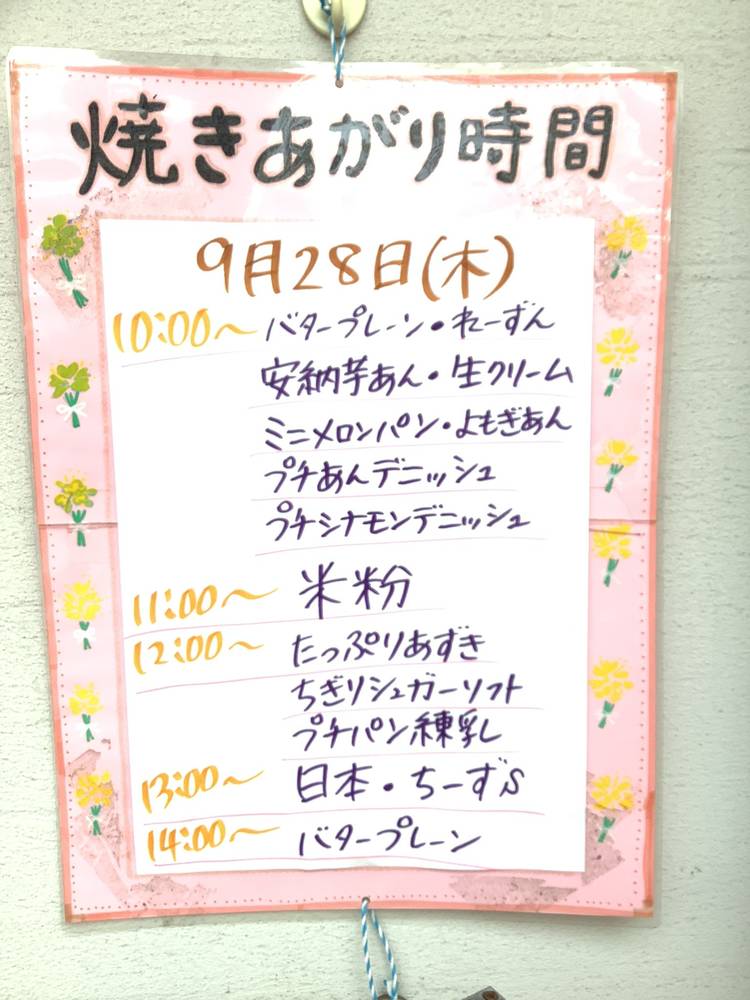 焼きあがり時間
9月28日(木)
10:00〜 バタープレーン・れーずん
安納芋あん・生クリーム
ミニメロンパン・よもぎあん
プチあんデニッシュ
プチシナモンデニッシュ
11:00〜 米粉
12:00〜 たっぷりあずき
ちぎりシュガーソフト
プチパン練乳
13:00〜 日本・ちーずS
14:00〜 バタープレーン